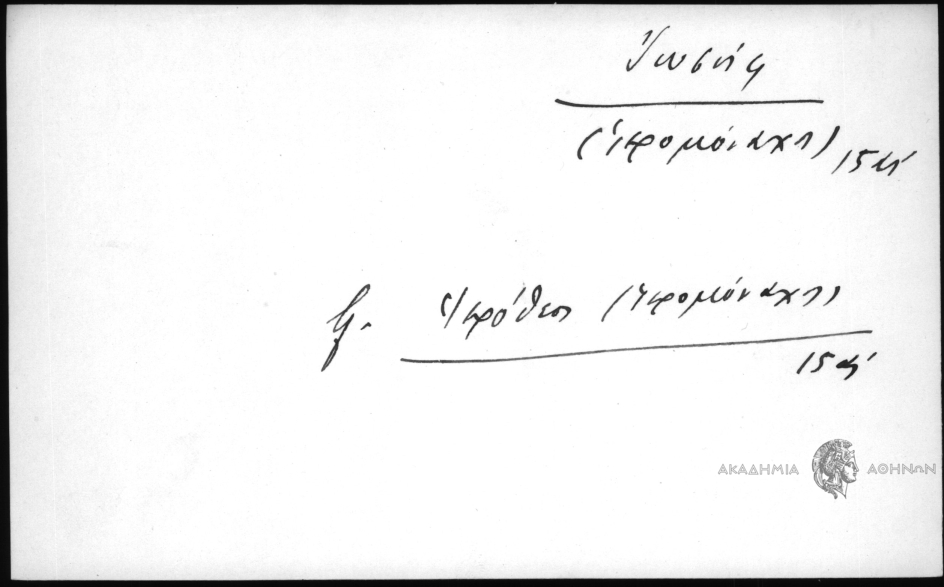 Ἰωσήφ
(ἱερομόναχος) 15 αἰ
βλ. Ἱερόθεος (ἱερομόναχος)
15 αἰ
ΑΚΑΔΗΜΙΑ ΑΘΗΝΩΝ